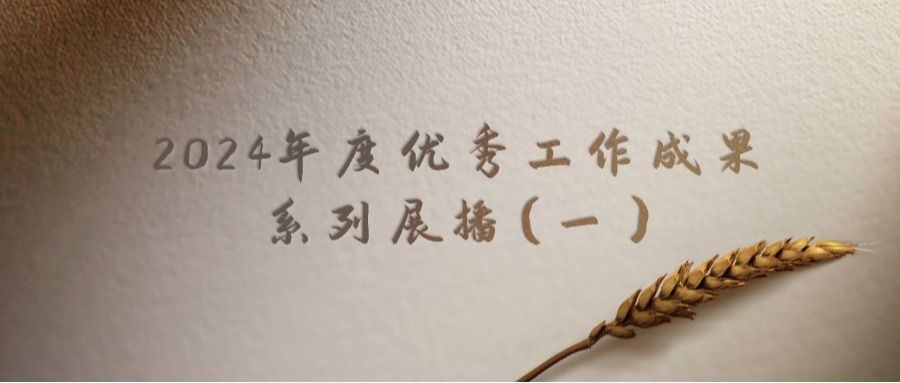 2024年度优秀工作成果
系列展播(一)